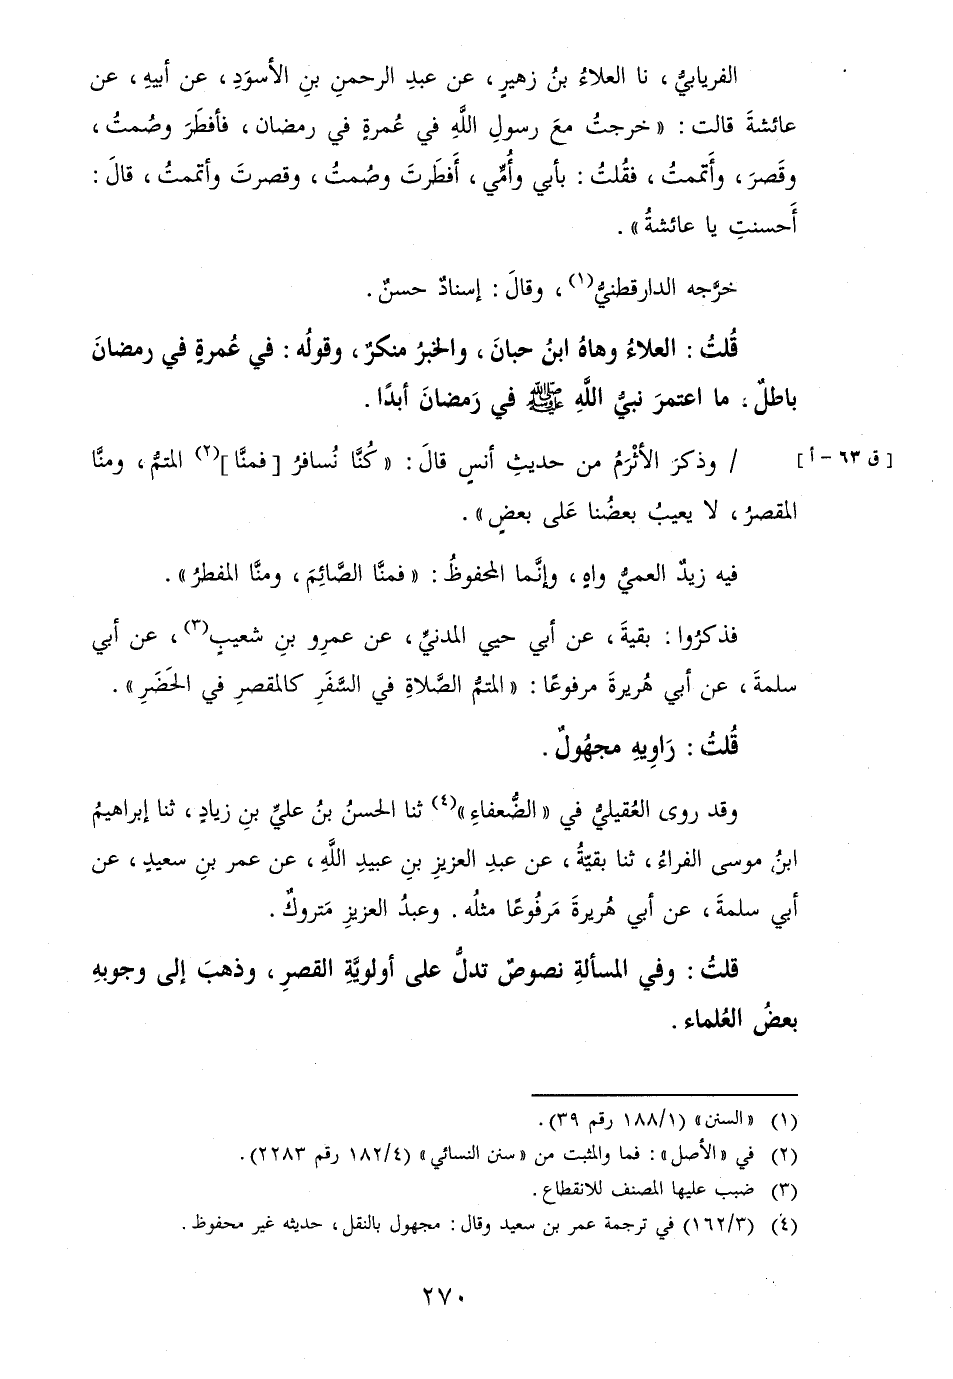 الفريابيُّ ، نا العلاءُ بنُ زهيرٍ ، عن عبدِ الرحمنِ بنِ الأسوَدِ ، عن أبيهِ ، عن
عائشةَ قالت : « خرجتُ معَ رسولِ اللَّهِ في عُمرةٍ في رمضان ، فأفطَرَ وصُمتُ ،
وقَصرَ ، وأَتممتُ ، فقُلتُ : بأبي وأُمِّي ، أَفطَرتَ وصُمتُ ، وقصرتَ وأتممتُ ، قالَ :
أَحسنتِ يا عائشةُ » .
خرَّجه الدارقطنيُّ(١) ، وقالَ : إسنادٌ حسنٌ .
قُلتُ : العلاءُ وهاهُ ابنُ حبانَ ، والخبرُ منكرٌ ، وقولُه : في عُمرةٍ في رمضانَ
باطلٌ ، ما اعتمرَ نبيُّ اللَّهِ ﷺ في رَمضانَ أبدًا .
[ ق ٦٣ - أ ] / وذكرَ الأثْرَمُ من حديثِ أنسٍ قالَ : « كُنَّا نُسافرُ [ فمنَّا ](٢) المتمُّ ، ومنَّا
المقصرُ ، لا يعيبُ بعضُنا عَلى بعضٍ » .
فيه زيدٌ العميُّ واهٍ ، وإنَّما المحفوظُ : « فمنَّا الصَّائِمَ ، ومنَّا المفطرُ » .
فذكرُوا : بقيةَ ، عن أبي حيي المدنيِّ ، عن عمرِو بنِ شعيبٍ(٣) ، عن أبي
سلمةَ ، عن أبي هُريرةَ مرفوعًا : « المتمُّ الصَّلاةِ في السَّفَرِ كالمقصرِ في الحَضَرِ » .
قُلتُ : رَاوِيهِ مجهُولٌ .
وقد روى العُقيليُّ في « الضُّعفاءِ »(٤) ثنا الحسنُ بنُ عليِّ بنِ زيادٍ ، ثنا إبراهيمُ
ابنُ موسى الفراءُ ، ثنا بقيّةُ ، عن عبدِ العزيزِ بنِ عبيدِ اللَّهِ ، عن عمر بنِ سعيدٍ ، عن
أبي سلمةَ ، عن أبي هُريرةَ مَرفُوعًا مثلُه . وعبدُ العزيزِ مَتروكٌ .
قلتُ : وفي المسألةِ نصوصٌ تدلُّ على أولويَّةِ القصرِ ، وذهبَ إلى وجوبهِ
بعضُ العُلماء .
(١) « السنن » (١٨٨/١ رقم ٣٩) .
(٢) في « الأصل » : فما والمثبت من « سنن النسائي » (١٨٢/٤ رقم ٢٢٨٣) .
(٣) ضبب عليها المصنف للانقطاع .
(٤) (١٦٢/٣) في ترجمة عمر بن سعيد وقال : مجهول بالنقل ، حديثه غير محفوظ .
٢٧٠